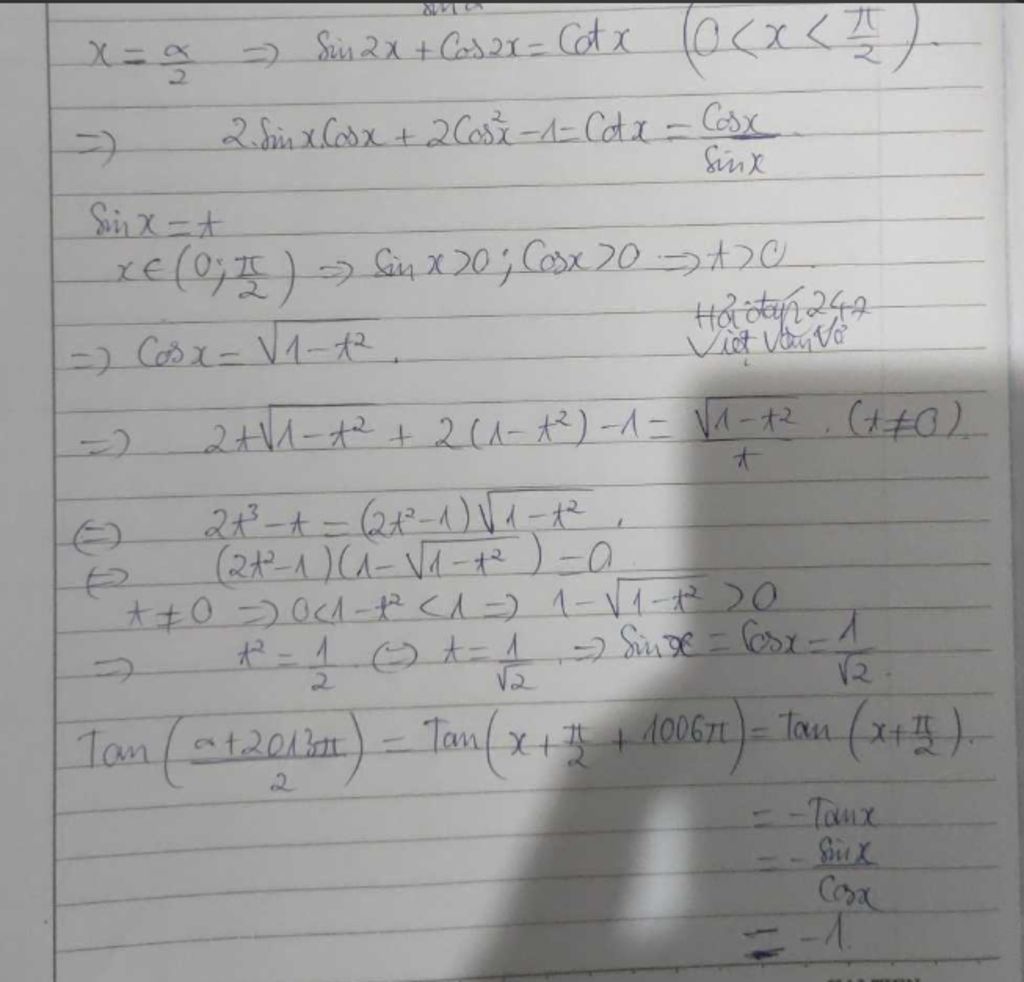 sin α
x = α/2 => Sin2x + Cos2x = Cotx (0 < x < π/2).
=> 2.Sinx.Cosx + 2Cos²x - 1 = Cotx = Cosx/Sinx
Sinx = t
x ∈ (0; π/2) => Sinx > 0; Cosx > 0 => t > 0.
=> Cosx = √(1-t²).
Việt Văn Võ
=> 2t√(1-t²) + 2(1-t²) - 1 = √(1-t²)/t. (t ≠ 0)
<=> 2t³ - t = (2t²-1)√(1-t²).
<=> (2t²-1)(1-√(1-t²)) = 0
t ≠ 0 => 0 < 1-t² < 1 => 1-√(1-t²) > 0
=> t² = 1/2 <=> t = 1/√2. => Sinx = Cosx = 1/√2.
Tan((α+2013π)/2) = Tan(x + π/2 + 1006π) = Tan(x + π/2).
= -Tanx
= -Sinx/Cosx
= -1.